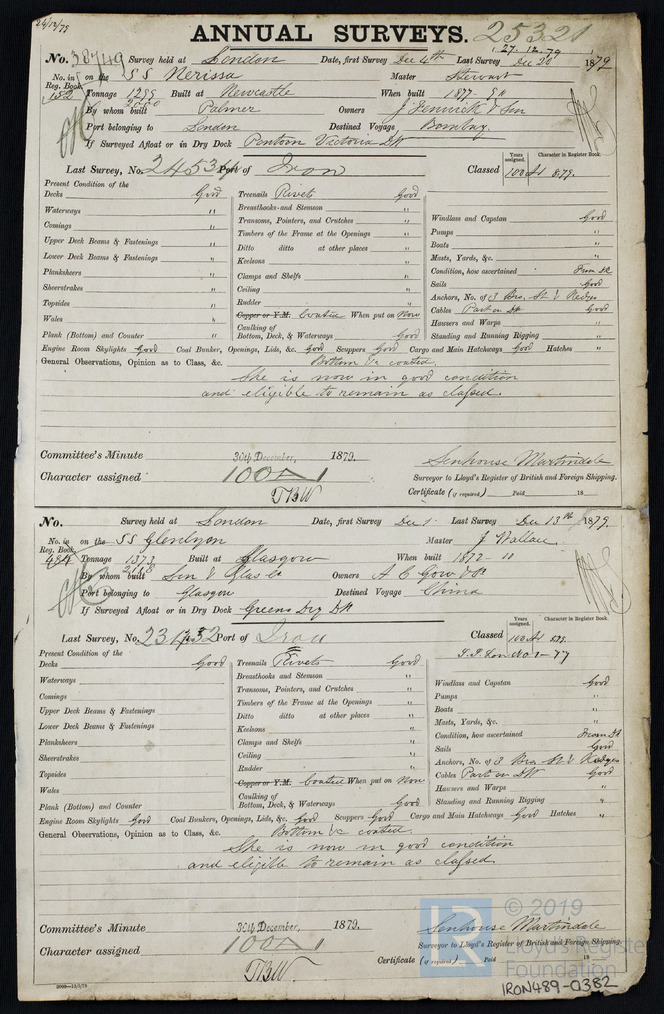 24/12/79
ANNUAL SURVEYS. 25321
27.12.79
No. 38749 Survey held at London Date, first Survey Dec 4th Last Survey Dec 20 1879
No. in Reg. Book 152 on the SS Nerissa Master Stewart
Tonnage 1295 Built at Newcastle When built 1877
By whom built Palmer Owners J Fenwick & Son
Port belonging to London Destined Voyage Bombay
If Surveyed Afloat or in Dry Dock Pontoon Victoria Dk
Last Survey, No. Port of Iron Classed Years assigned. 100 A1 Character in Register Book. 8.79.
Present Condition of the
Decks Good Treenails Rivets Good
Waterways " Breasthooks and Stemson " Windlass and Capstan Good
Comings " Transoms, Pointers, and Crutches " Pumps "
Upper Deck Beams & Fastenings " Timbers of the Frame at the Openings " Boats "
Lower Deck Beams & Fastenings " Ditto ditto at other places " Masts, Yards, &c. "
Planksheers " Keelsons " Condition, how ascertained From Dk
Sheerstrakes " Clamps and Shelfs " Sails Good
Topsides " Ceiling " Anchors, No. of 3 Brs, St & Kedges
Wales " Rudder " Cables Part on Dk Good
Copper or Y.M. Coated When put on Now Hawsers and Warps "
Plank (Bottom) and Counter " Caulking of Bottom, Deck, & Waterways Good Standing and Running Rigging "
Engine Room Skylights Good Coal Bunker, Openings, Lids, &c. Good Scuppers Good Cargo and Main Hatchways Good Hatches "
General Observations, Opinion as to Class, &c. Bottom &c coated.
She is now in good condition
and eligible to remain as classed.
Committee's Minute 30th December, 1879. Senhouse Martindale
Character assigned 100A1 Surveyor to Lloyd's Register of British and Foreign Shipping.
TBW Certificate (if required) Paid 18
No. Survey held at London Date, first Survey Dec 1 Last Survey Dec 13th 1879.
No. in Reg. Book 484 on the SS Glenlyon Master J Wallace
Tonnage 1373 Built at Glasgow When built 1872
By whom built Owners A C Gow & Co
Port belonging to Glasgow Destined Voyage China
If Surveyed Afloat or in Dry Dock Greens Dry Dk
Last Survey, No. Port of Iron Classed Years assigned. 100 A1 Character in Register Book.
Present Condition of the
Decks Good Treenails Rivets Good
Waterways Breasthooks and Stemson " Windlass and Capstan Good
Comings Transoms, Pointers, and Crutches " Pumps "
Upper Deck Beams & Fastenings Timbers of the Frame at the Openings " Boats "
Lower Deck Beams & Fastenings Ditto ditto at other places " Masts, Yards, &c. "
Planksheers Keelsons " Condition, how ascertained From Dk
Sheerstrakes Clamps and Shelfs " Sails Good
Topsides Ceiling " Anchors, No. of 3 Brs St & Kedges
Wales Rudder " Cables Part on Dk Good
Copper or Y.M. Coated When put on Now Hawsers and Warps "
Plank (Bottom) and Counter Caulking of Bottom, Deck, & Waterways Good Standing and Running Rigging "
Engine Room Skylights Good Coal Bunkers, Openings, Lids, &c. Good Scuppers Good Cargo and Main Hatchways Good Hatches "
General Observations, Opinion as to Class, &c. Bottom &c coated.
She is now in good condition
and eligible to remain as classed.
Committee's Minute 30th December, 1879. Senhouse Martindale
Character assigned 100A1 Surveyor to Lloyd's Register of British and Foreign Shipping.
TBW Certificate (if required) Paid 18
LR © 2019
Lloyd's Register
Foundation
IRON489-0382